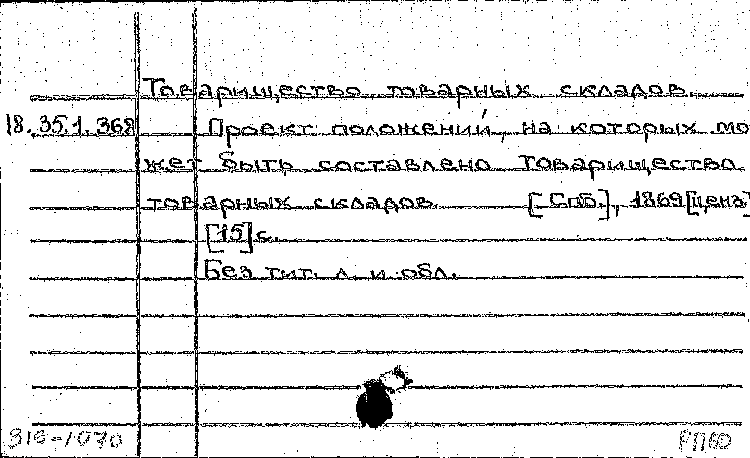 Товарищество товарных складов.
18.35.1.368 Проект положений, на которых мо
жет быть составлено Товарищество
товарных складов. [Спб.], 1869 [ценз]
[15] с.
Без тит. л. и обл.
316-1070